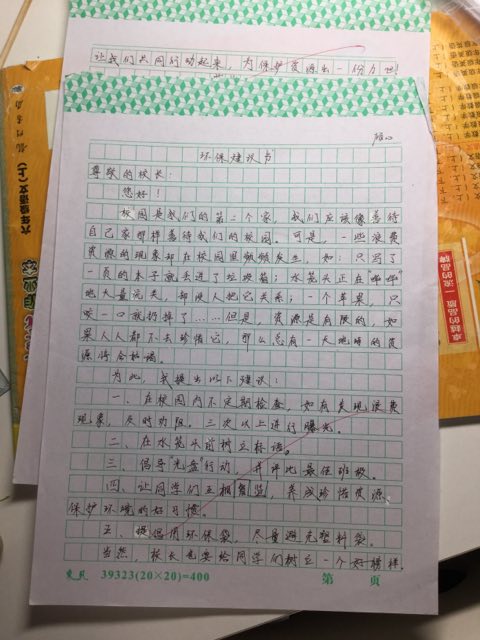 让我们共同行动起来,为保护资源出一份力吧!
环保建议书
尊敬的校长:
您好!
校园是我们的第二个家,我们应该像善待
自己家那样善待我们的校园。可是,一些浪费
资源的现象却在校园里频频发生,如:只写了
一页的本子就丢进了垃圾箱;水笼头正在"哗哗"
地大量流失,却没人把它关系;一个苹果,只
咬一口就扔掉了……但是,资源是有限的,如
果人人都不去珍惜它,那么总有一天地球的资
源将会枯竭。
为此,我提出以下建议:
一、在校园内不定期检查,如有发现浪费
现象,及时劝阻。三次以上进行曝光。
二、在水笼头前树立标语。
三、倡导"光盘"行动,并评比最佳班级。
四、让同学们互相监,养成珍惜资源、
保护环境的好习惯。
五、提倡用环保袋,尽量避免塑料袋。
当然,校长也要给同学们树立一个好榜样。
39323(20×20)=400 第 页
六年级语文(上)
卓越的品质 一流的品牌